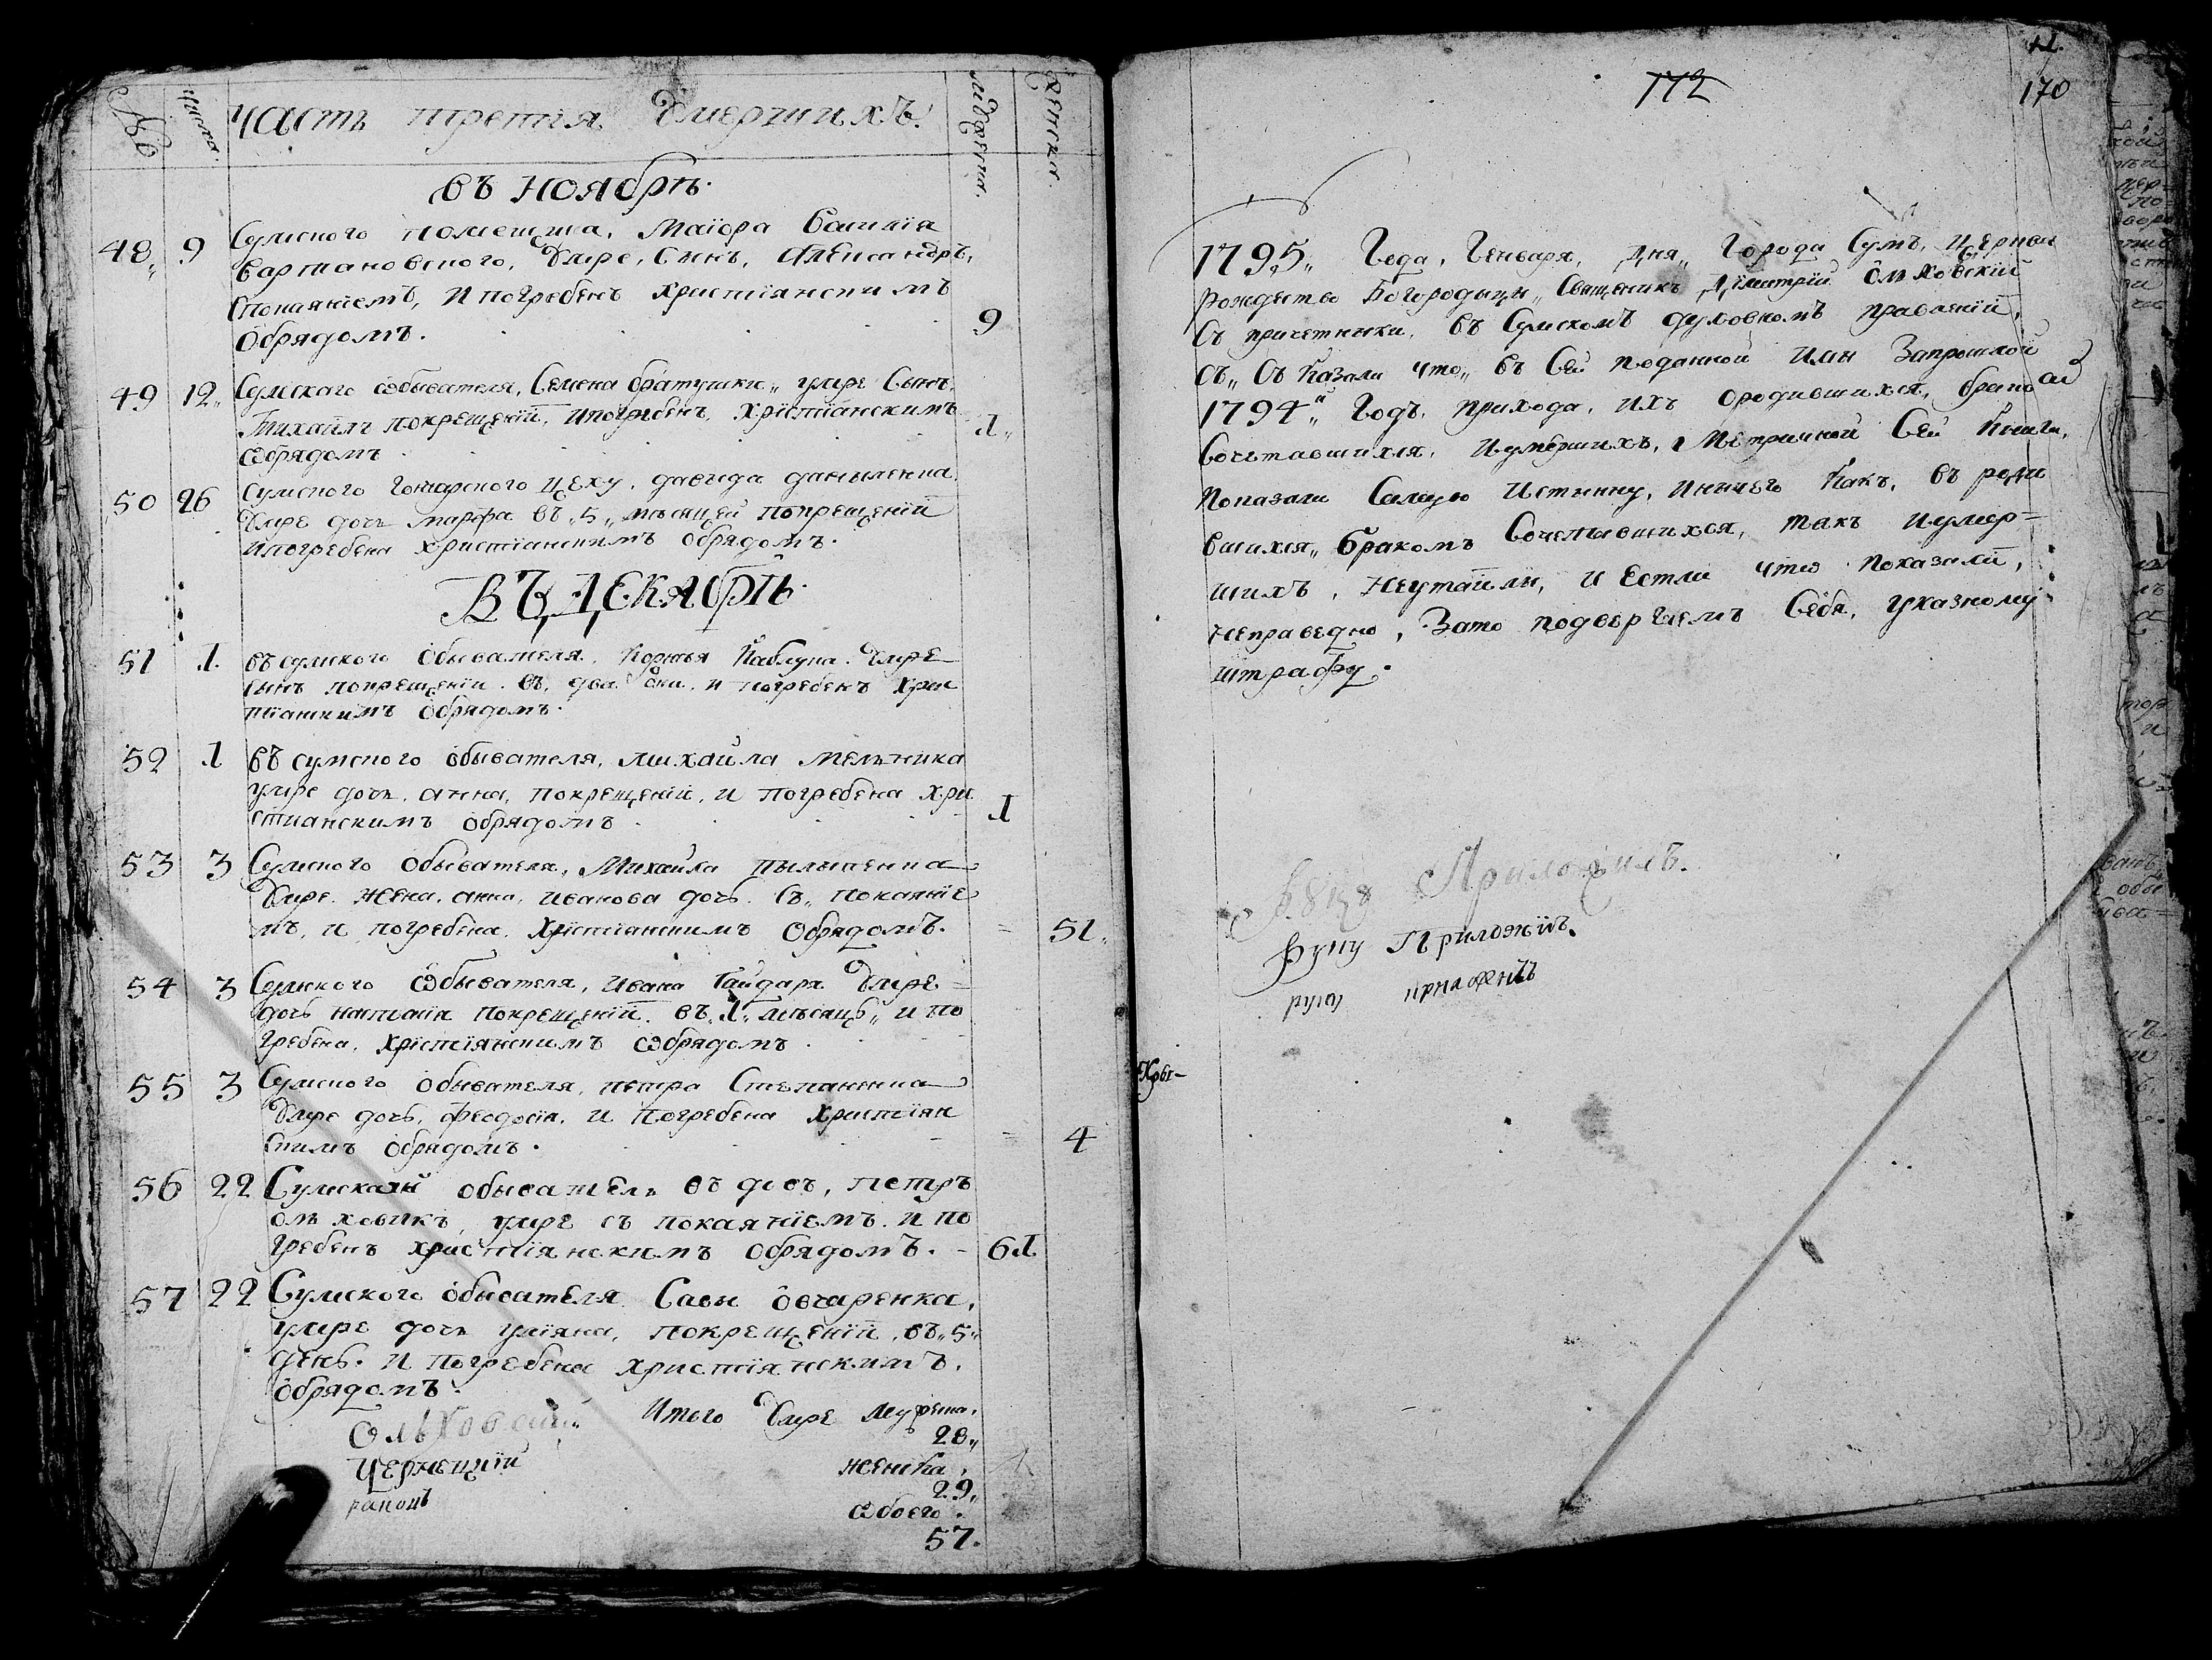 № числа. часть третія Умершихъ. Мужеска. Женска.
въ ноябрѣ.
48 9 Сумского помещика, Маіора Василія
Вартановского, Умре, Сынъ, Александръ,
Спокаяніемъ, И погребенъ христіанскимъ
Обрядомъ. 9
49 12 Сумскаго обывателя, Семена братушки, умре Сынъ,
Михаилъ покрещеніи, ипогребенъ, Христіанскимъ 1
обрядомъ
50 26 Сумского Гончарского цеху, давида даныленка,
Умре дочь марфа въ 5 мѣсяцей покрещеніи
ипогребена христіанскимъ обрядомъ.
ВЪ ДЕКАБРѢ
51 1 въ сумского обывателя, Корнѣя Каблука. Умре
сынъ покрещеніи. въ, два дни, и погребенъ Хри
стіанкимъ обрядомъ.
52 1 въ сумского обывателя, михайла мельника
умре дочь, анна, покрещеніи, и погребена хри 1
стианскимъ обрядомъ
53 3 Сумского обывателя, Михайла
Умре. жена, анна, иванова дочь. Съ покаяніе
мъ, и погребена, Христіанскимъ Обрядомъ. 51
54 3 Сумкого обывателя, ивана Гайдаря Умре
дочь наталія покрещеніи. въ 1 мѣсяцъ и по
гребена, Христіянскимъ обрядомъ.
55 3 Сумского обывателя, петра Степаненка
Умре дочь, феодосія, и погребена христіян
скимъ обрядомъ. 4
56 22 Сумскаій обыватель въдовъ, петръ
ольховикъ, умре съ покаяніемъ. и по
гребенъ христіянскимъ обрядомъ. 61
57 22 Сумского обывателя Савы овчаренка,
умре дочь уліяна, покрещеніи, въ 5
день. и погребена христіянскимъ,
обрядомъ.
Ольховскій Итого Умре мужеска,
28
Чернецкій женска,
29
обоего.
57.
172
170
1795 Года, Генваря, дня Города Сумъ, церкви
рождества Богородицы Священикъ Димитрій Ольховскій
Съ причетники, въ Сумскомъ духовномъ правленіи,
Съ Казали что въ Сей поданной ими Запрошлой
1794 Годъ, прихода, ихъ ородившихся, брако
Сочетавшихся, Иумершихъ, Метричной Сей Книги,
показали Самую Истинну, Иничего Какъ, въ роди
вшихся Бракомъ Сочетавшихся, такъ иумер
шихъ, Неутаили, и Естли что показали,
неправедно, Зато подвергаемъ Себя, указному
штрафу.
Приложилъ.
руку Приложилъ.
руку приложилъ